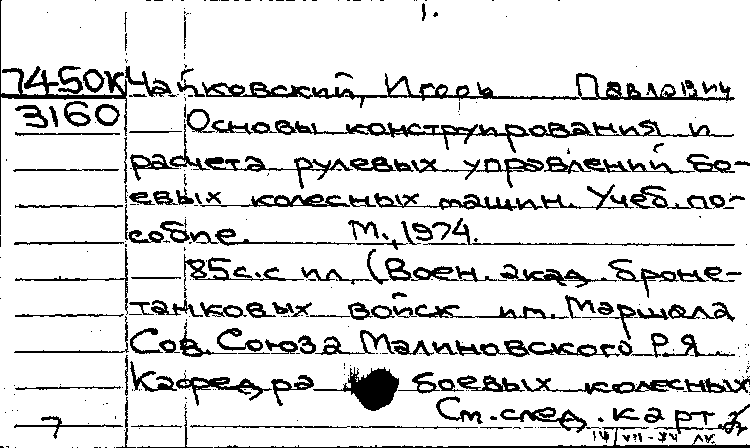 1.
74-50К Чайковский, Игорь Павлович
3160 Основы конструирования и
расчета рулевых управлений бо-
евых колесных машин. Учеб. по-
собие. М., 1974.
85с. с ил. (Воен. акад. броне-
танковых войск им. Маршала
Сов. Союза Малиновского Р.Я.
Кафедра боевых колесных
См. след. карт.
7